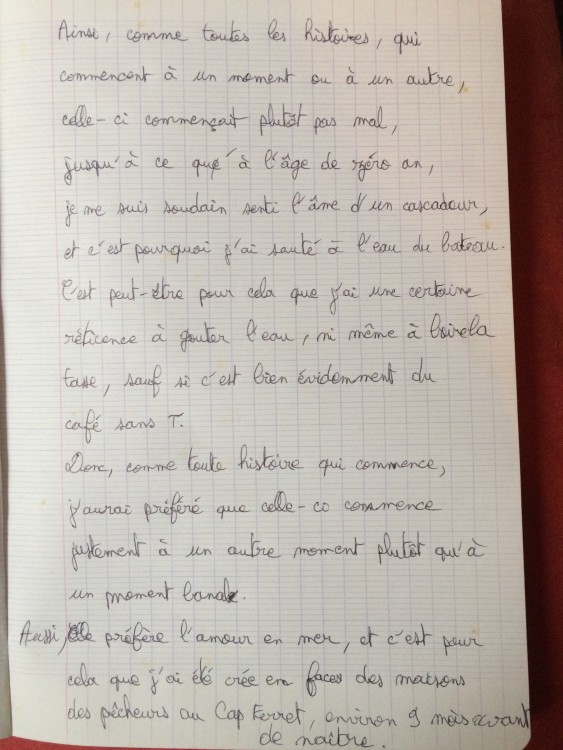 Ainsi, comme toutes les histoires, qui
commencent à un moment ou à un autre,
celle-ci commençait plutôt pas mal,
jusqu'à ce que à l'âge de zéro an,
je me suis soudain senti l'âme d'un cascadeur,
et c'est pourquoi j'ai sauté à l'eau du bateau.
C'est peut-être pour cela que j'ai une certaine
réticence à gouter l'eau, ni même à boire la
tasse, sauf si c'est bien évidemment du
café sans T.
Donc, comme toute histoire qui commence,
j'aurai préféré que celle-ci commence
justement à un autre moment plutôt qu'à
un moment banal.
Aussi, préfère l'amour en mer, et c'est pour
cela que j'ai été crée en faces des maisons
des pêcheurs au Cap Ferret, environ 9 mois avant
de naître.